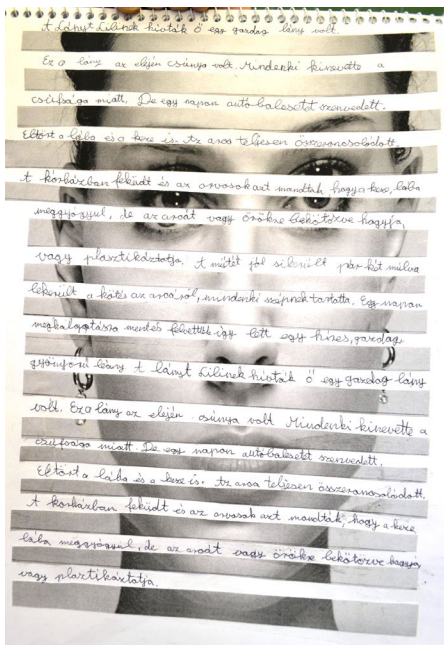 A Lányt Lilinek hívták Ő egy gazdag lány volt.
Ez a lány az elején csúnya volt. Mindenki kinevette a
csúfsága miatt. De egy napon autóbalesetet szenvedett.
Eltört a lába és a keze is. Az arca teljesen összeroncsolódott.
A kórházban feküdt és az orvosok azt mondták hogy a keze, lába
meggyógyul, de az arcát vagy örökre bekötözve hagyja,
vagy plasztikáztatja. A műtét jól sikerült pár hét múlva
lekerült a kötés az arcáról, mindenki szépnek tartotta. Egy napon
meghallgatásra ment és felvették így lett egy híres, gazdag,
gyönyörű leány A lányt Lilinek hívták Ő egy gazdag lány
volt. Ez a lány az elején csúnya volt Mindenki kinevette a
csúfsága miatt. De egy napon autóbalesetet szenvedett.
Eltört a lába és a keze is. Az arca teljesen összeroncsolódott.
A kórházban feküdt és az orvosok azt mondták, hogy a keze
lába meggyógyul, de az arcát vagy örökre bekötözve hagyja
vagy plasztikáztatja.